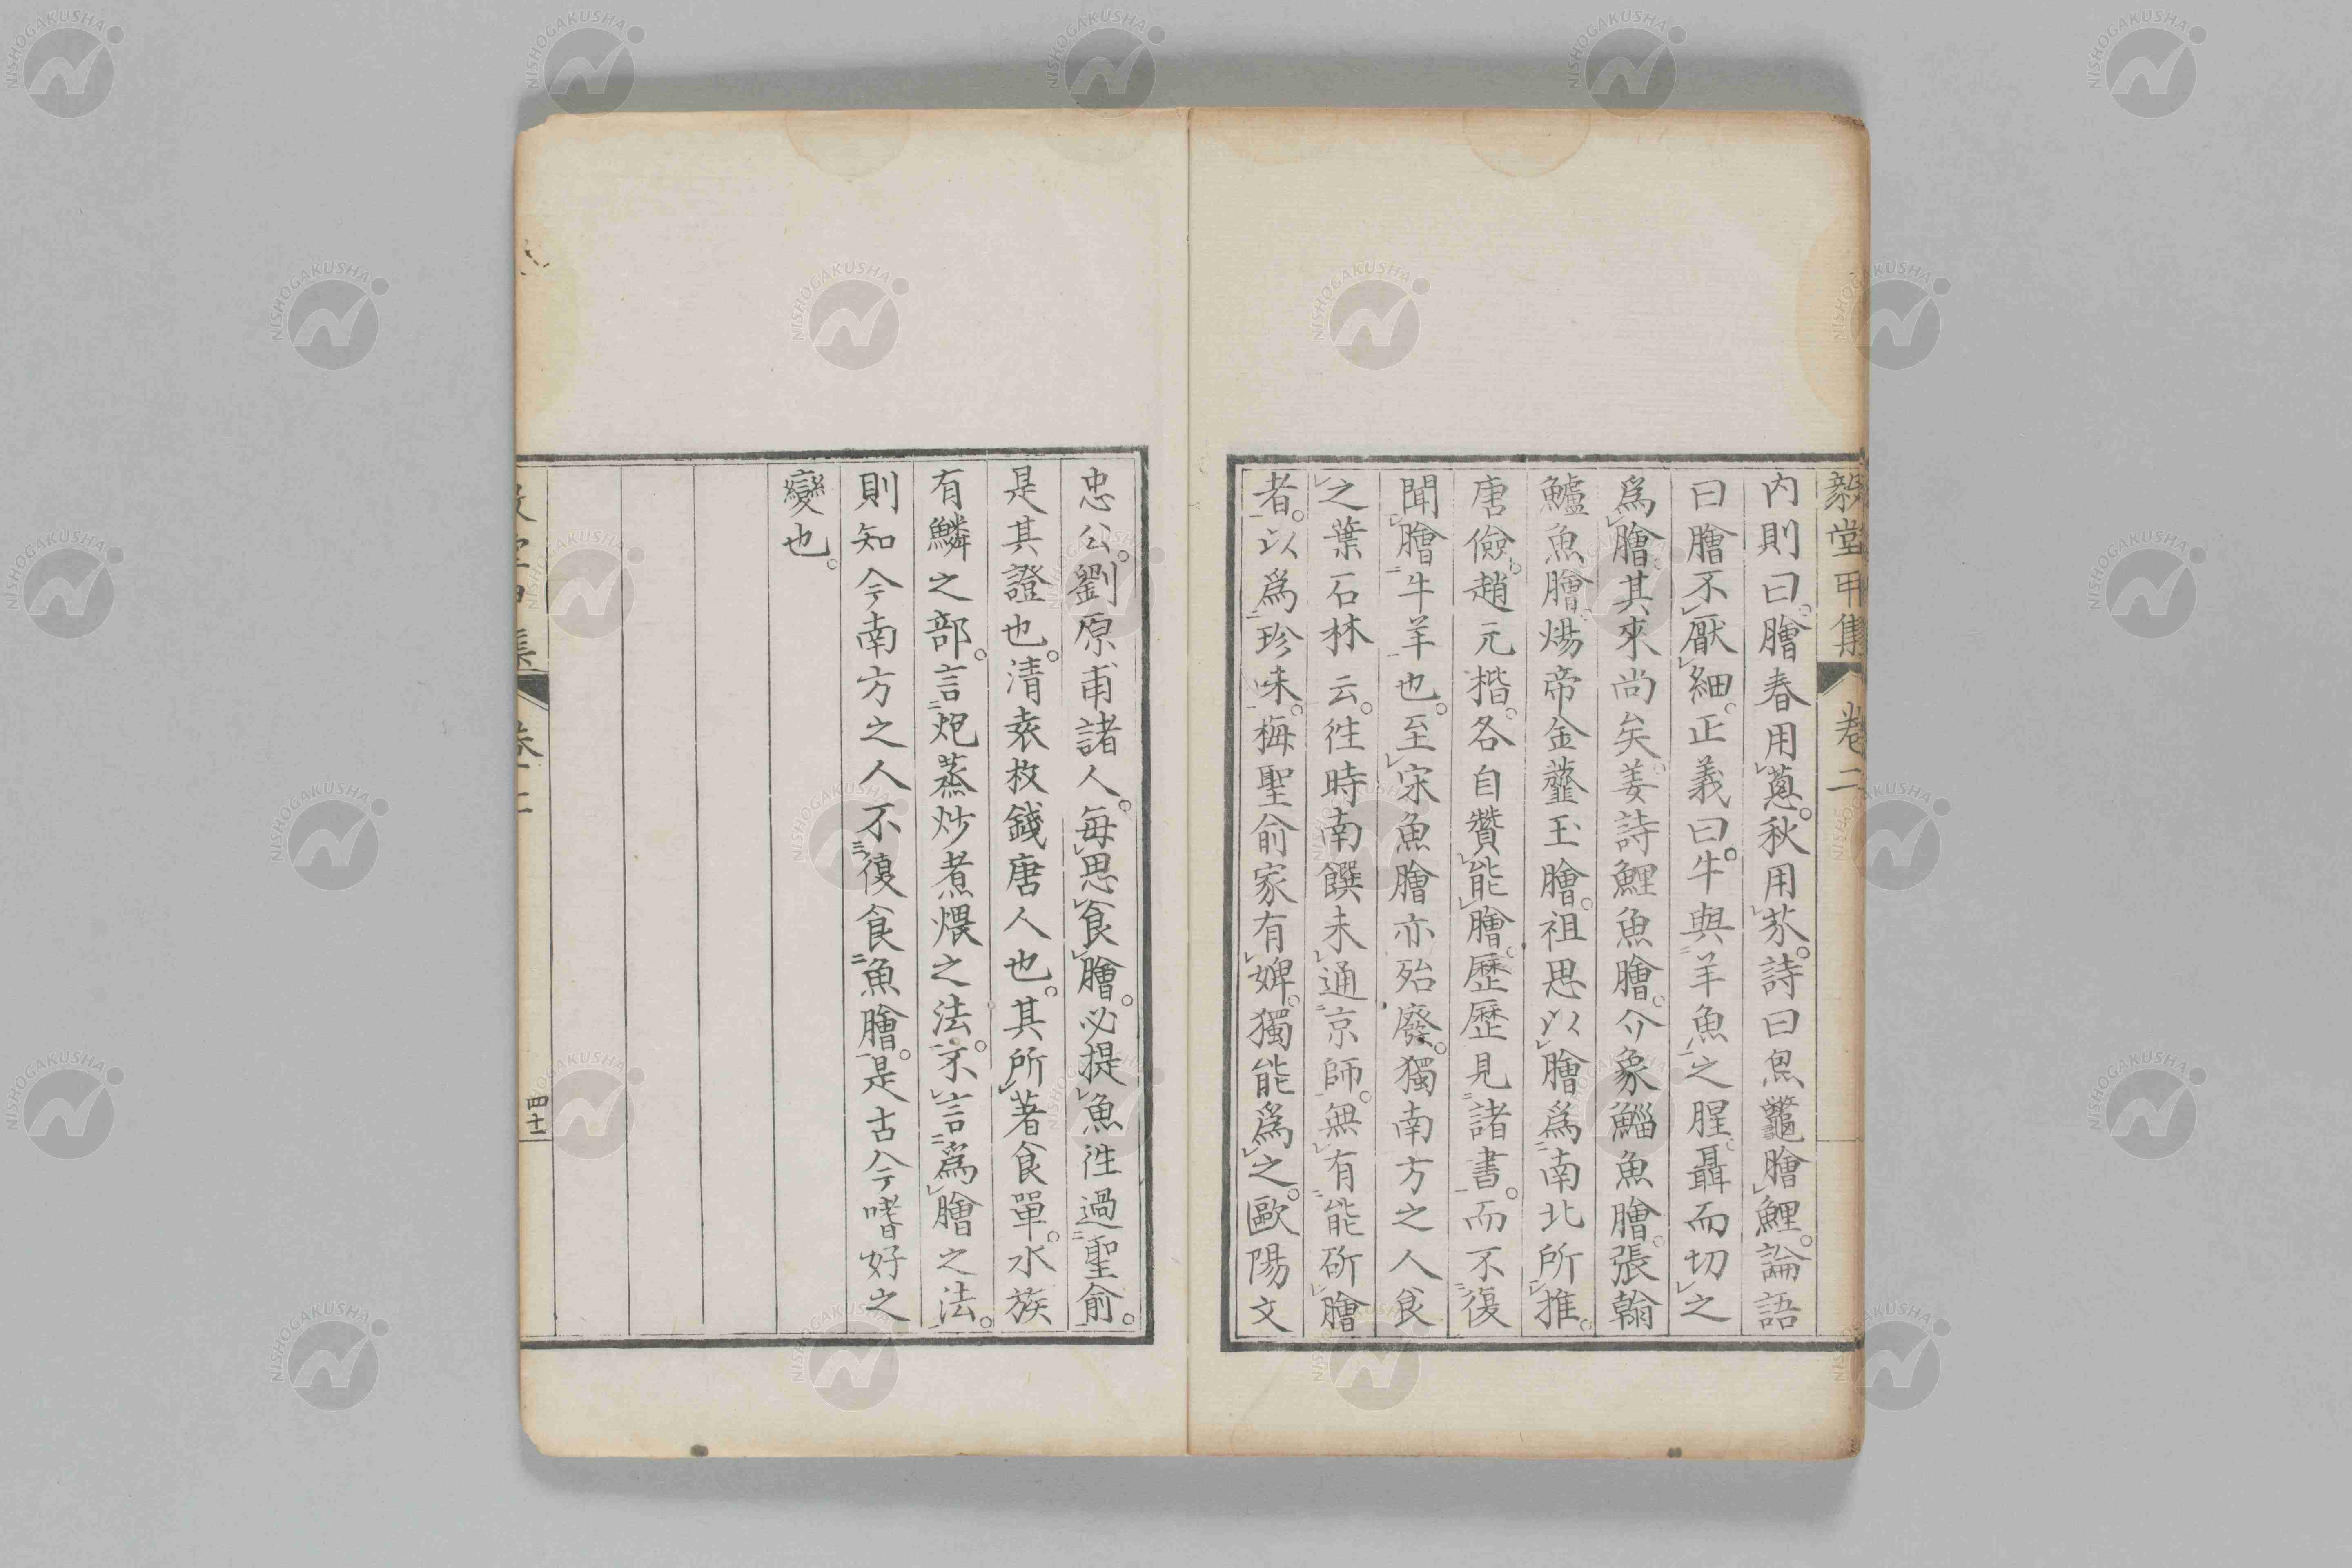 毅堂甲集 卷二
内則曰。膾春用蔥。秋用芥。詩曰炰鼈膾鯉。論語
曰膾不厭細。正義曰。牛與羊魚之腥。聶而切之
爲膾。其來尚矣。姜詩鯉魚膾。介象鯔魚膾。張翰
鱸魚膾。煬帝金虀玉膾。祖思以膾爲南北所推。
唐儉。趙元楷。各自贊能膾。歷歷見諸書。而不復
聞膾牛羊也。至宋魚膾亦殆廢。獨南方之人食
之葉石林云。徃時南饌未通京師。無有能斫膾
者。以爲珍味。梅聖俞家有婢。獨能爲之。歐陽文
忠公。劉原甫諸人。每思食膾。必提魚徃過聖俞。
是其證也。清袁枚錢唐人也。其所著食單。水族
有鱗之部。言炮蒸炒煮煨之法。不言爲膾之法。
則知今南方之人不復食魚膾。是古今嗜好之
變也。
四十二
NISHOGAKUSHA